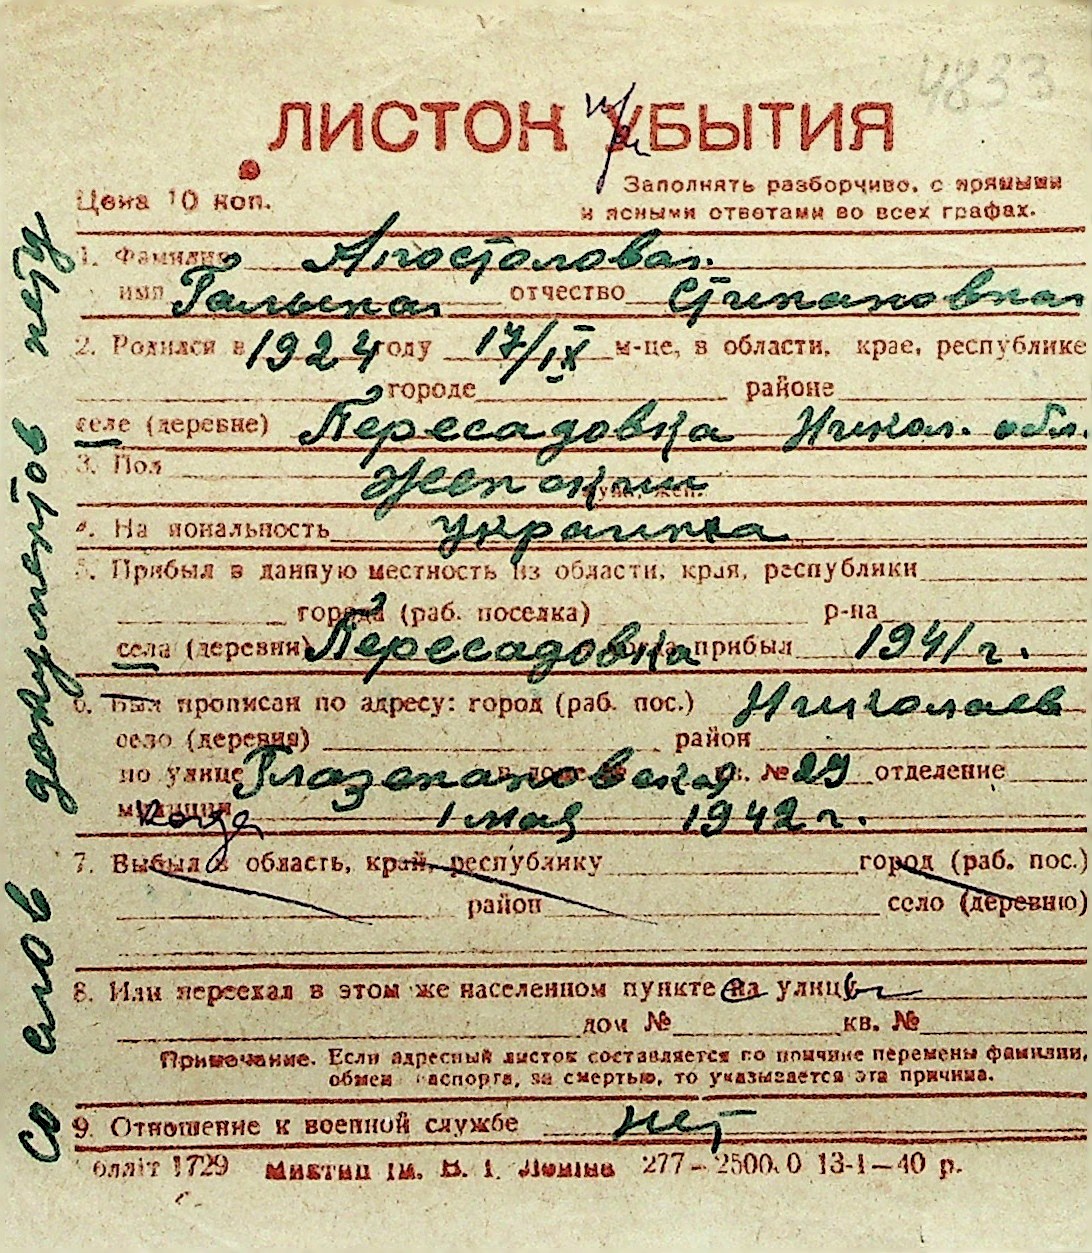 4833
ЛИСТОК УБЫТИЯ
Цена 10 коп.
Заполнять разборчиво, с прямыми
и ясными ответами во всех графах.
1. Фамилия Апостолова
имя Галына отчество Стипановна
2. Родился в 1924 году 17/IX м-це, в области, крае, республике
городе районе
селе (деревне) Пересадовка Никол. обл.
3. Пол Женский
муж., жен.
4. Национальность украинка
5. Прибыл в данную местность из области, края, республики
города (раб. поселка) р-на
села (деревни) Пересадовка прибыл 1941 г.
6. Был прописан по адресу: город (раб. пос.) Николаев
село (деревня) район
по улице Глазенаповская кв. № 29 отделение
милиции когда 1 мая 1942 г.
7. Выбыл в область, край, республику город (раб. пос.)
район село (деревню)
8. Или переехал в этом же населенном пункте на улицу
дом № кв. №
Примечание. Если адресный листок составляется по причине перемены фамилии,
обмен паспорта, за смертью, то указывается эта причина.
9. Отношение к военной службе нет
Облліт 1729 Миктип ім. В. І. Леніна 277—2500.0 13-1—40 р.
со слов документов нету